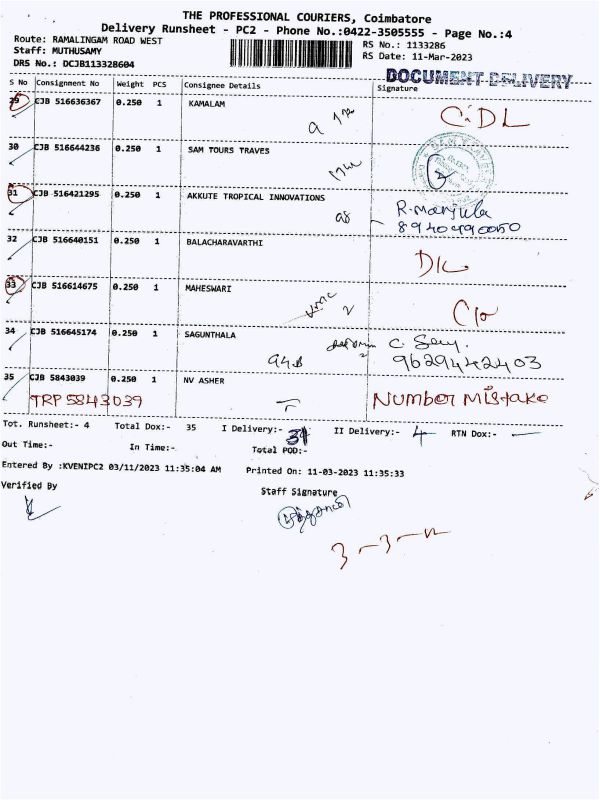 THE PROFESSIONAL COURIERS, Coimbatore
Delivery Runsheet - PC2 - Phone No.:0422-3505555 - Page No.:4
Route: RAMALINGAM ROAD WEST
RS No.: 1133286
Staff: MUTHUSAMY
RS Date: 11-Mar-2023
DRS No.: DCJB113328604
DOCUMENT DELIVERY
S No Consignment No Weight PCS Consignee Details Signature
29 CJB 516636367 0.250 1 KAMALAM
C.DL
30 CJB 516644236 0.250 1 SAM TOURS TRAVES
31 CJB 516421295 0.250 1 AKKUTE TROPICAL INNOVATIONS
R. Manjula
32 CJB 516640151 0.250 1 BALACHARAVARTHI
D/L
33 CJB 516614675 0.250 1 MAHESWARI
34 CJB 516645174 0.250 1 SAGUNTHALA
9629442403
35 CJB 5843039 0.250 1 NV ASHER
TRP 5843039
Number Mistake
Tot. Runsheet:- 4 Total Dox:- 35 I Delivery:- II Delivery:- 4 RTN Dox:-
Out Time:- In Time:- Total POD:-
Entered By :KVENIPC2 03/11/2023 11:35:04 AM Printed On: 11-03-2023 11:35:33
Verified By
Staff Signature